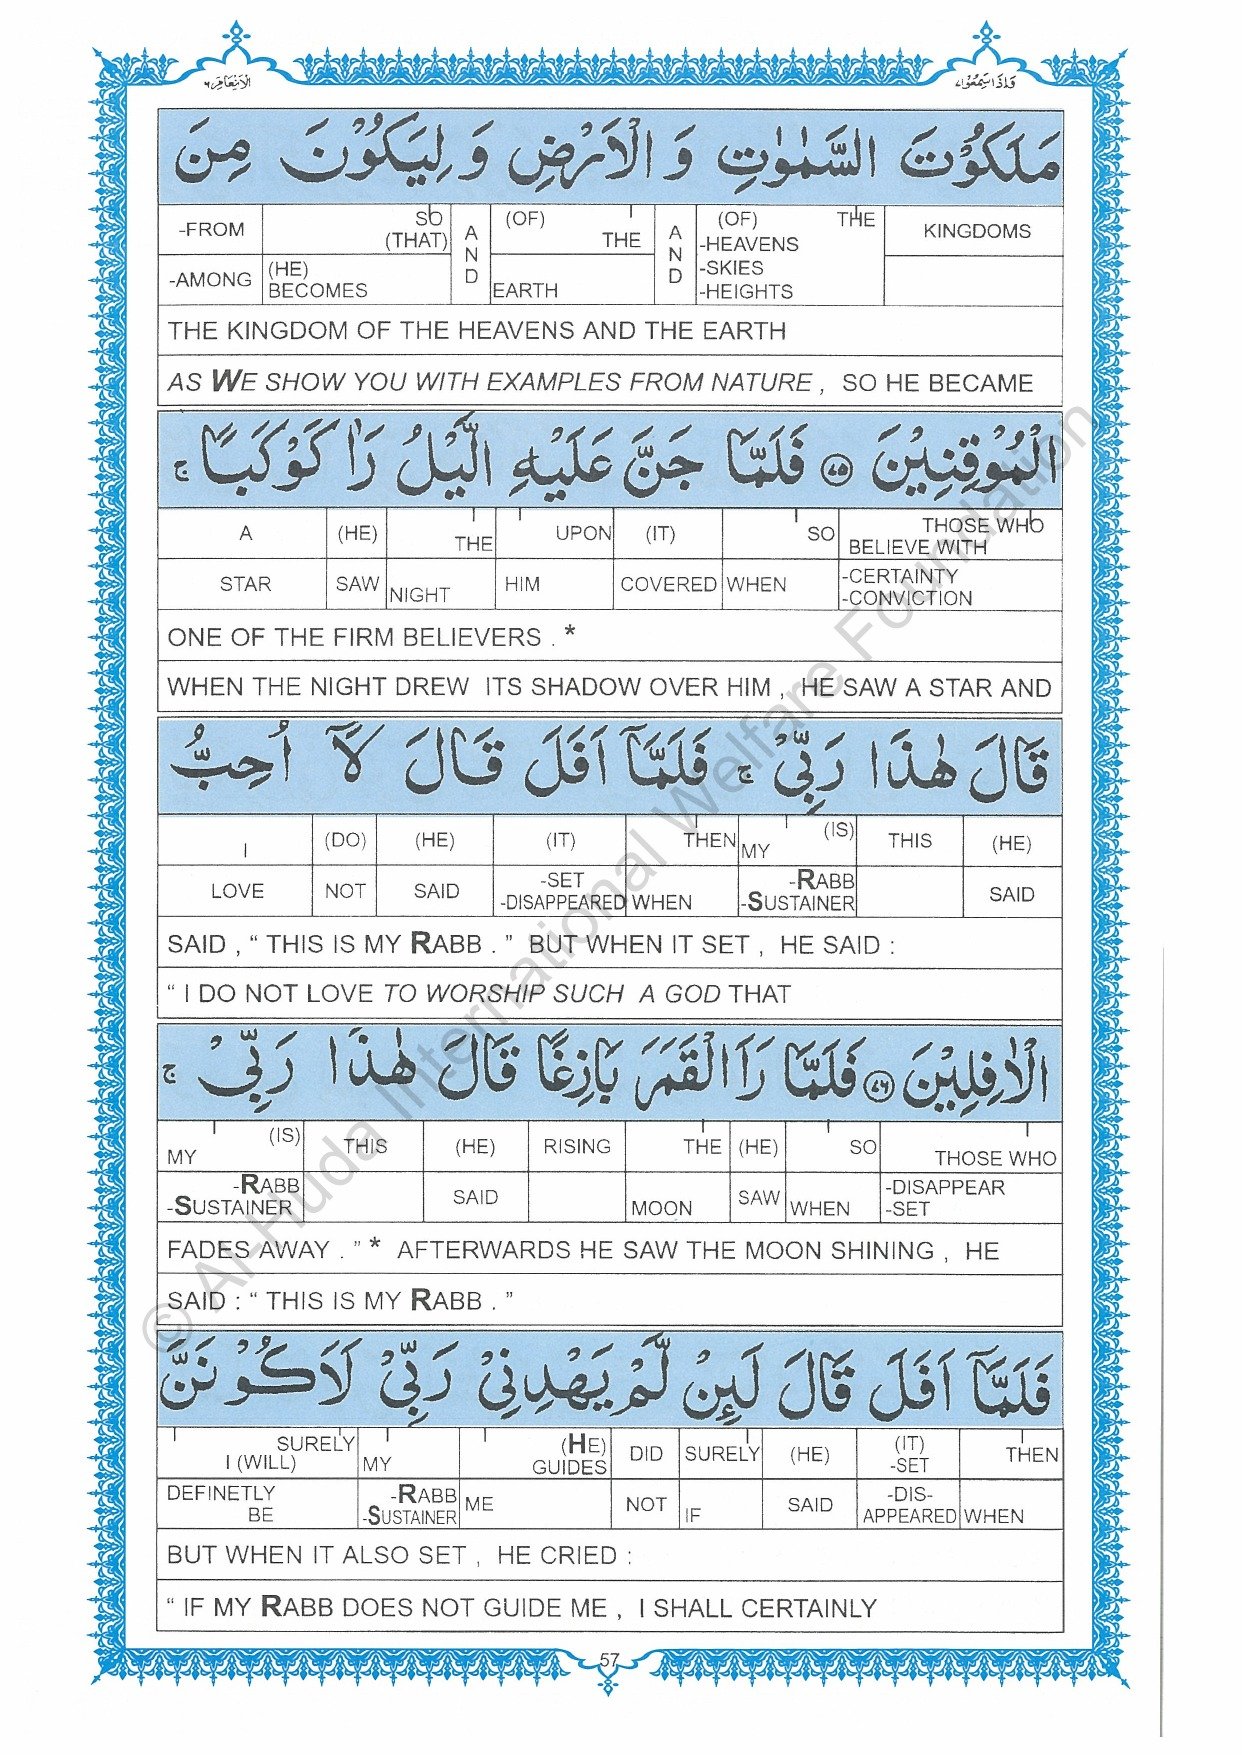 الانعام ٦
واذا سمعوا ٧
مَلَكُوْتَ السَّمٰوٰتِ وَ الْاَرْضِ وَ لِيَكُوْنَ مِنَ
-FROM SO (THAT) AND (OF) THE AND (OF) THE KINGDOMS
-AMONG (HE) BECOMES EARTH -HEAVENS -SKIES -HEIGHTS
THE KINGDOM OF THE HEAVENS AND THE EARTH
AS WE SHOW YOU WITH EXAMPLES FROM NATURE , SO HE BECAME
الْمُوْقِنِيْنَ ٧٥ فَلَمَّا جَنَّ عَلَيْهِ الَّيْلُ رَاٰ كَوْكَبًا ج
A (HE) THE UPON (IT) SO THOSE WHO BELIEVE WITH
STAR SAW NIGHT HIM COVERED WHEN -CERTAINTY -CONVICTION
ONE OF THE FIRM BELIEVERS . *
WHEN THE NIGHT DREW ITS SHADOW OVER HIM , HE SAW A STAR AND
قَالَ هٰذَا رَبِّيْ ج فَلَمَّآ اَفَلَ قَالَ لَآ اُحِبُّ
I (DO) (HE) (IT) THEN MY (IS) THIS (HE)
LOVE NOT SAID -SET -DISAPPEARED WHEN -RABB -SUSTAINER SAID
SAID , “ THIS IS MY RABB . ” BUT WHEN IT SET , HE SAID :
“ I DO NOT LOVE TO WORSHIP SUCH A GOD THAT
الْاٰفِلِيْنَ ٧٦ فَلَمَّا رَاَ الْقَمَرَ بَازِغًا قَالَ هٰذَا رَبِّيْ ج
MY (IS) THIS (HE) RISING THE (HE) SO THOSE WHO
-RABB -SUSTAINER SAID MOON SAW WHEN -DISAPPEAR -SET
FADES AWAY . ” * AFTERWARDS HE SAW THE MOON SHINING , HE
SAID : “ THIS IS MY RABB . ”
فَلَمَّآ اَفَلَ قَالَ لَئِنْ لَّمْ يَهْدِنِيْ رَبِّيْ لَاَكُوْنَنَّ
SURELY I (WILL) MY (HE) GUIDES DID SURELY (HE) (IT) -SET THEN
DEFINETLY BE -RABB -SUSTAINER ME NOT IF SAID -DIS- APPEARED WHEN
BUT WHEN IT ALSO SET , HE CRIED :
“ IF MY RABB DOES NOT GUIDE ME , I SHALL CERTAINLY
57
© Al-Huda International Welfare Foundation